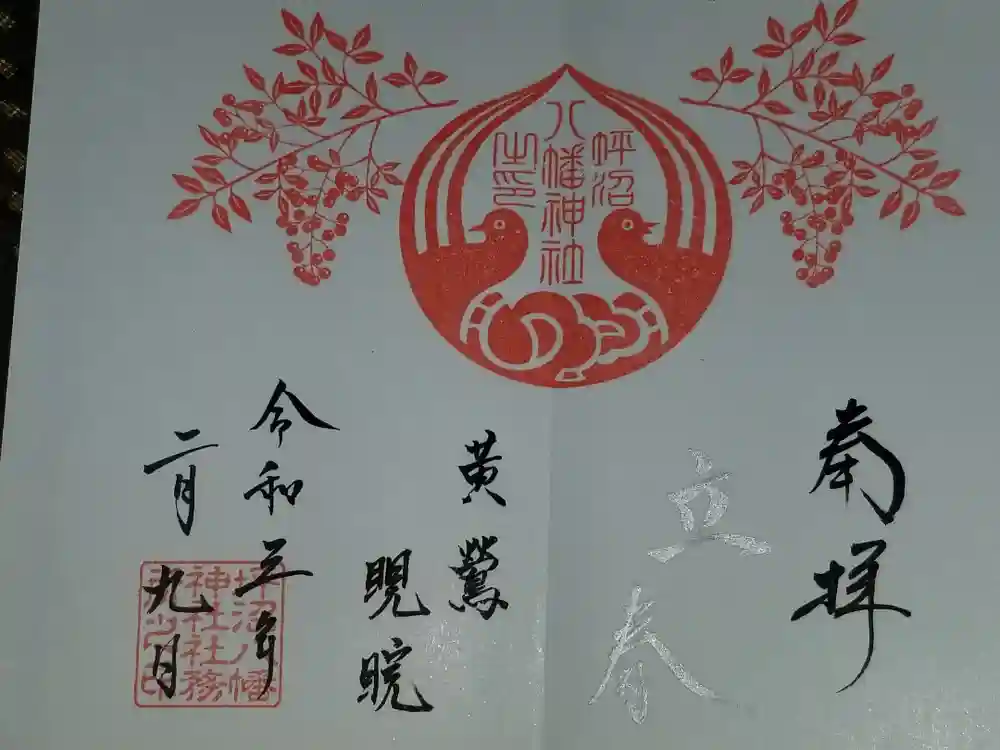 坪沼
八幡神社
之印
奉拝
立春
黄鶯
睍睆
令和三年
二月九日
坪沼八幡
神社社務
所之印